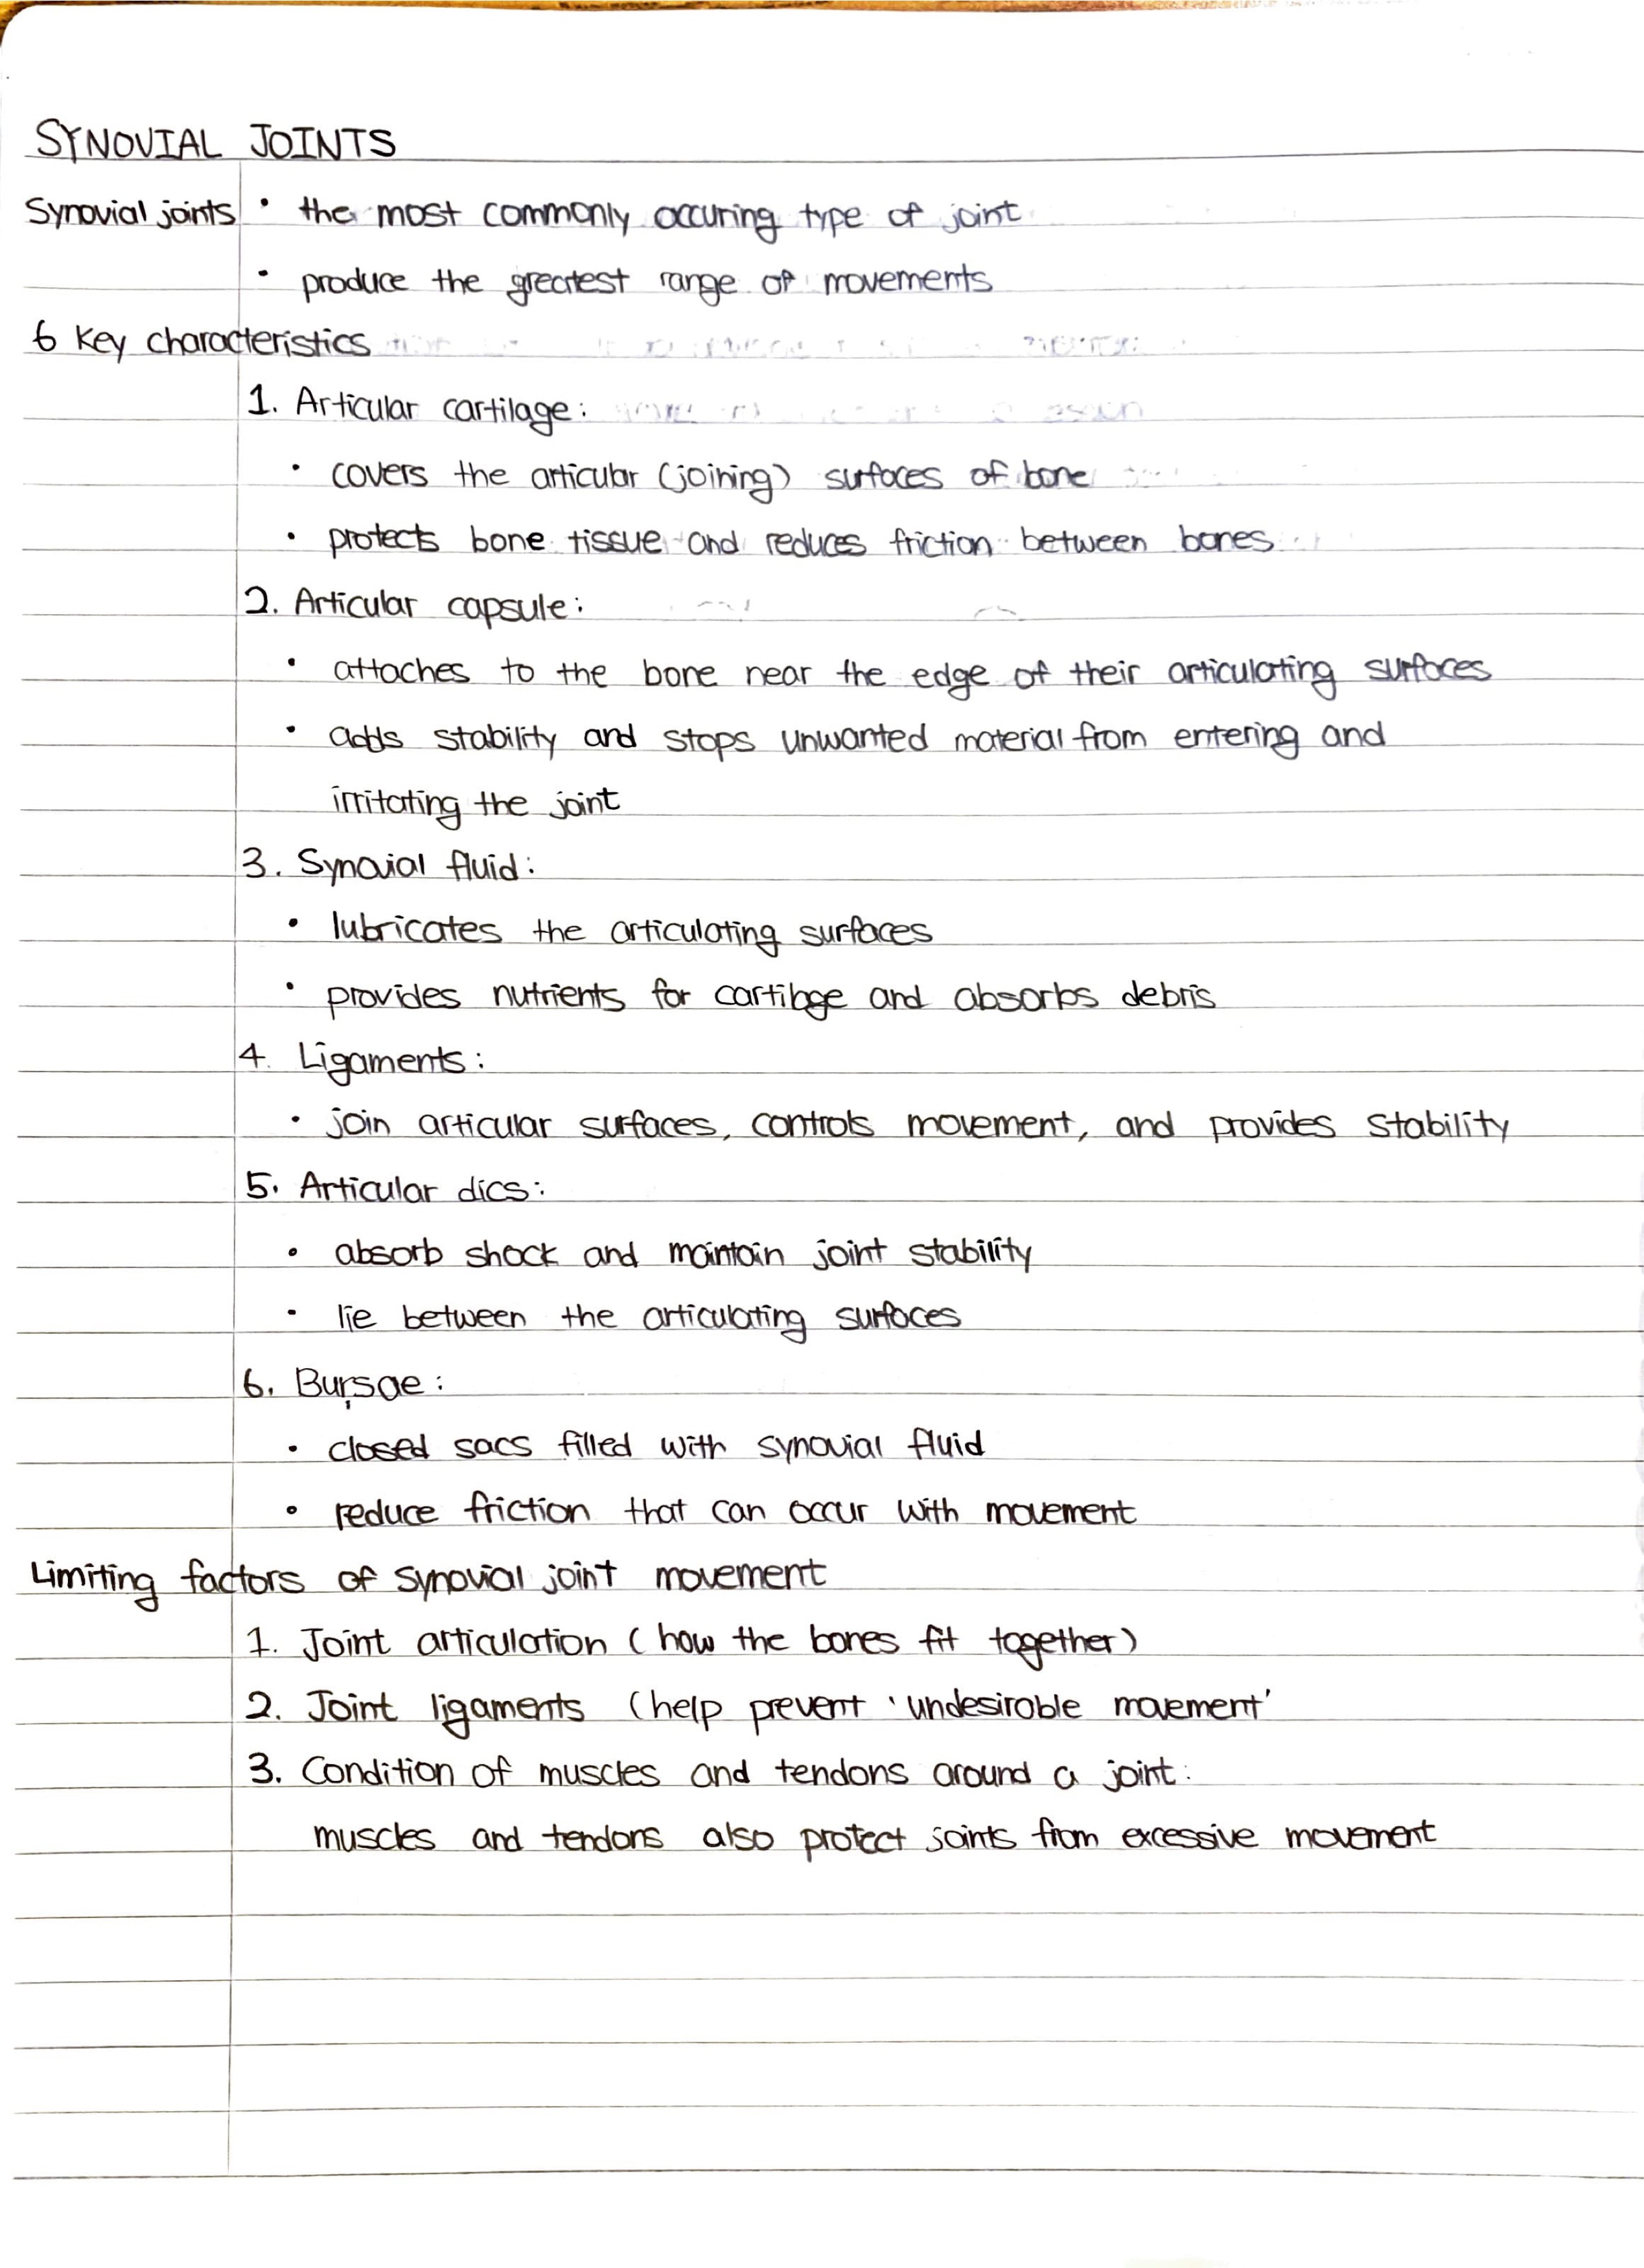 SYNOVIAL JOINTS
Synovial joints • the most commonly occuring type of joint
• produce the greatest range of movements
6 Key characteristics
1. Articular cartilage:
• covers the articular (joining) surfaces of bone
• protects bone tissue and reduces friction between bones
2. Articular capsule:
• attaches to the bone near the edge of their articulating surfaces
• adds stability and stops unwanted material from entering and
irritating the joint
3. Synovial fluid:
• lubricates the articulating surfaces
• provides nutrients for cartilage and absorbs debris
4. Ligaments:
• join articular surfaces, controls movement, and provides stability
5. Articular dics:
• absorb shock and maintain joint stability
• lie between the articulating surfaces
6. Bursae:
• closed sacs filled with synovial fluid
• reduce friction that can occur with movement
Limiting factors of synovial joint movement
1. Joint articulation (how the bones fit together)
2. Joint ligaments (help prevent 'undesirable movement'
3. Condition of muscles and tendons around a joint:
muscles and tendons also protect joints from excessive movement